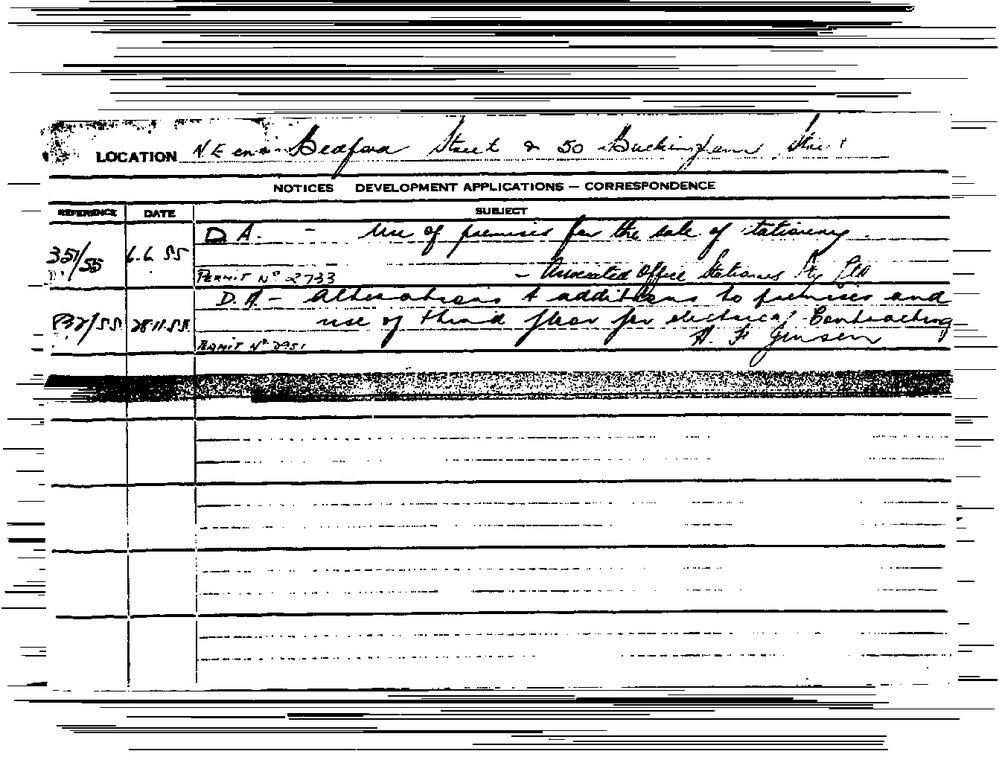 LOCATION N.E. cnr Bedford Street & 50 Buckingham Street
NOTICES DEVELOPMENT APPLICATIONS — CORRESPONDENCE
REFERENCE DATE SUBJECT
D A. - Use of premises for the sale of stationery.
351/55 6.6.55
PERMIT Nº 2733 - Associated Office Stationers Pty Ltd
D.A. - Alterations & additions to premises and
/55 28.11.55 use of third floor for electrical Contracting
PERMIT Nº A. F. Jensen